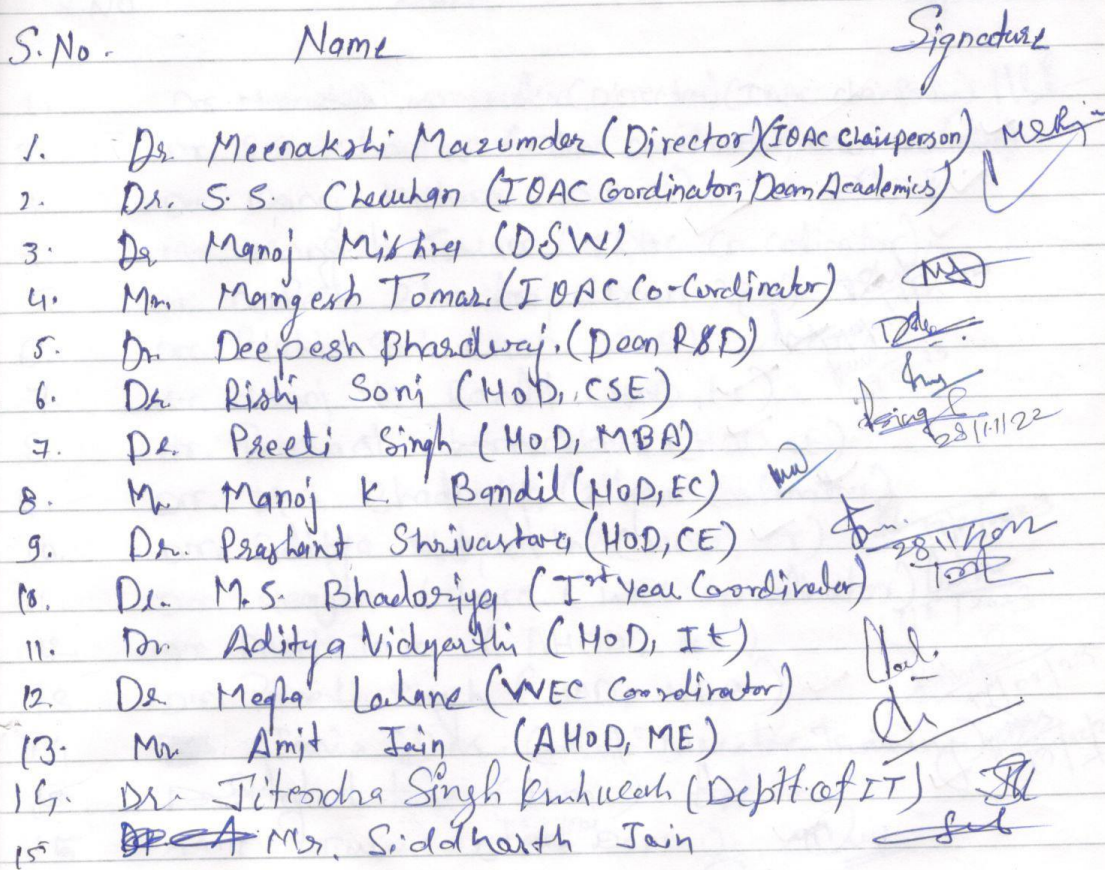 S.No. Name Signature
1. Dr. Meenakshi Mazumdar (Director) (IQAC Chairperson)
2. Dr. S.S. Chauhan (IQAC Coordinator, Dean Academics)
3. Dr Manoj Mishra (DSW)
4. Mr. Mangesh Tomar. (IQAC Co-Cordinator)
5. Dr. Deepesh Bhardwaj. (Dean R&D)
6. Dr. Rishi Soni (HoD, CSE)
7. Dr. Preeti Singh (HoD, MBA) 28/11/22
8. Mr. Manoj K. Bandil (HoD, EC)
9. Dr. Prashant Shrivastava (HoD, CE) 28/11/2022
10. Dr. M.S. Bhadoriya (Ist Year Coordinator)
11. Dr. Aditya Vidyarthi (HoD, It)
12. Dr. Megha (WEC Coordinator)
13. Mr. Amit Jain (AHoD, ME)
14. Dr. Jitendra Singh Kushwah (Deptt. of IT)
15 Mr. Siddharth Jain